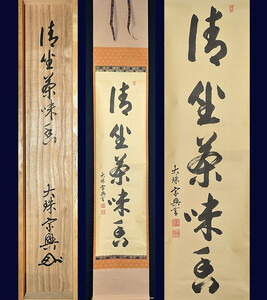 清坐茶味香
大珠宗興
清坐茶味香
大珠宗興書
清坐茶味香
大珠宗興書